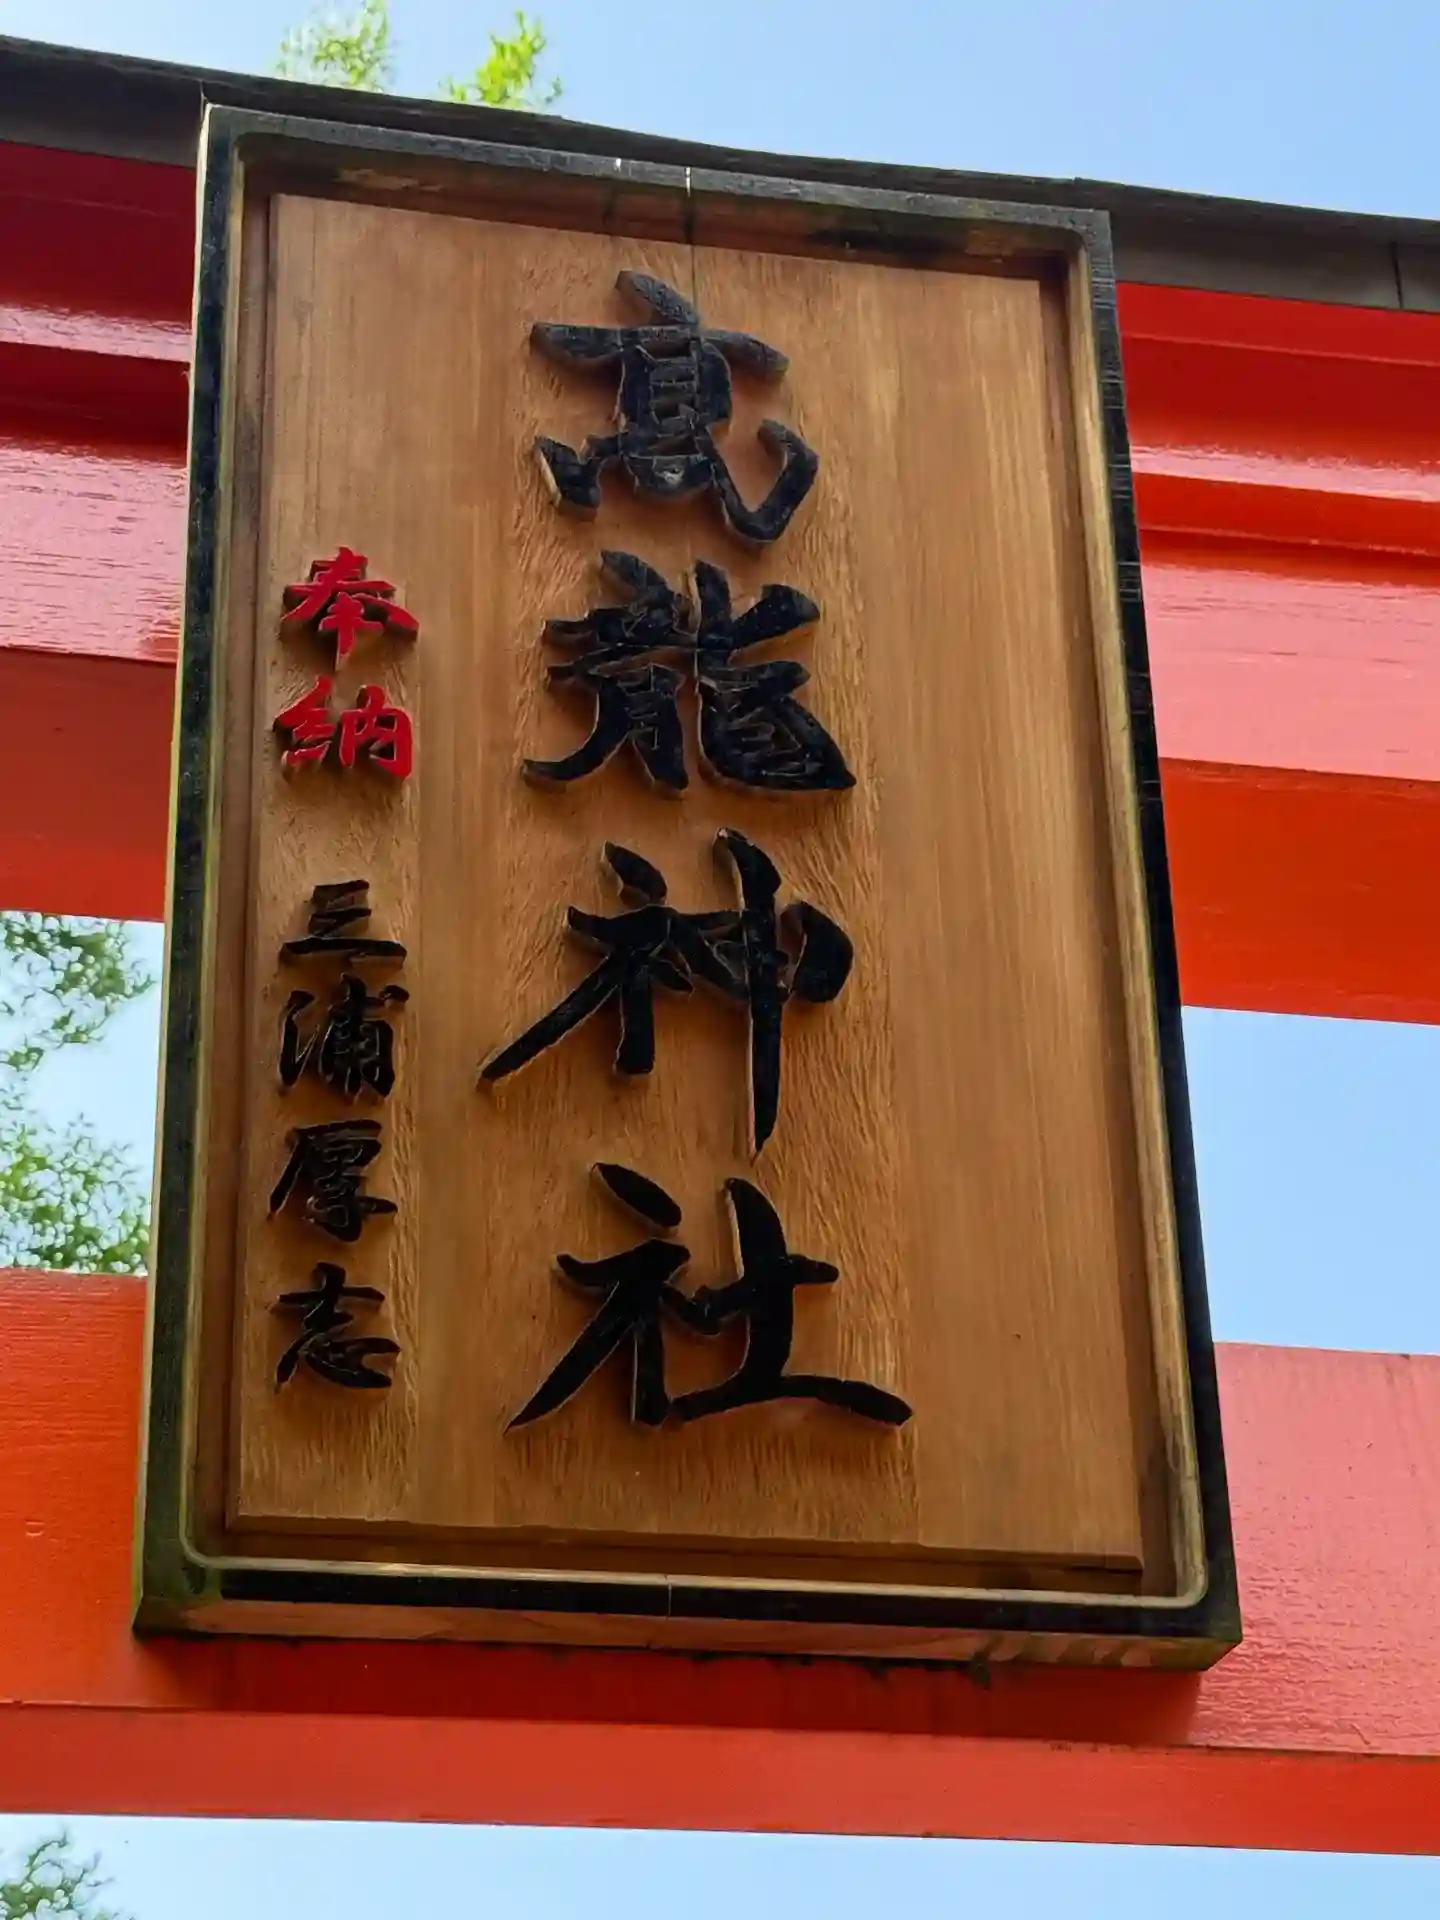 髙龍神社
奉納 三浦厚志